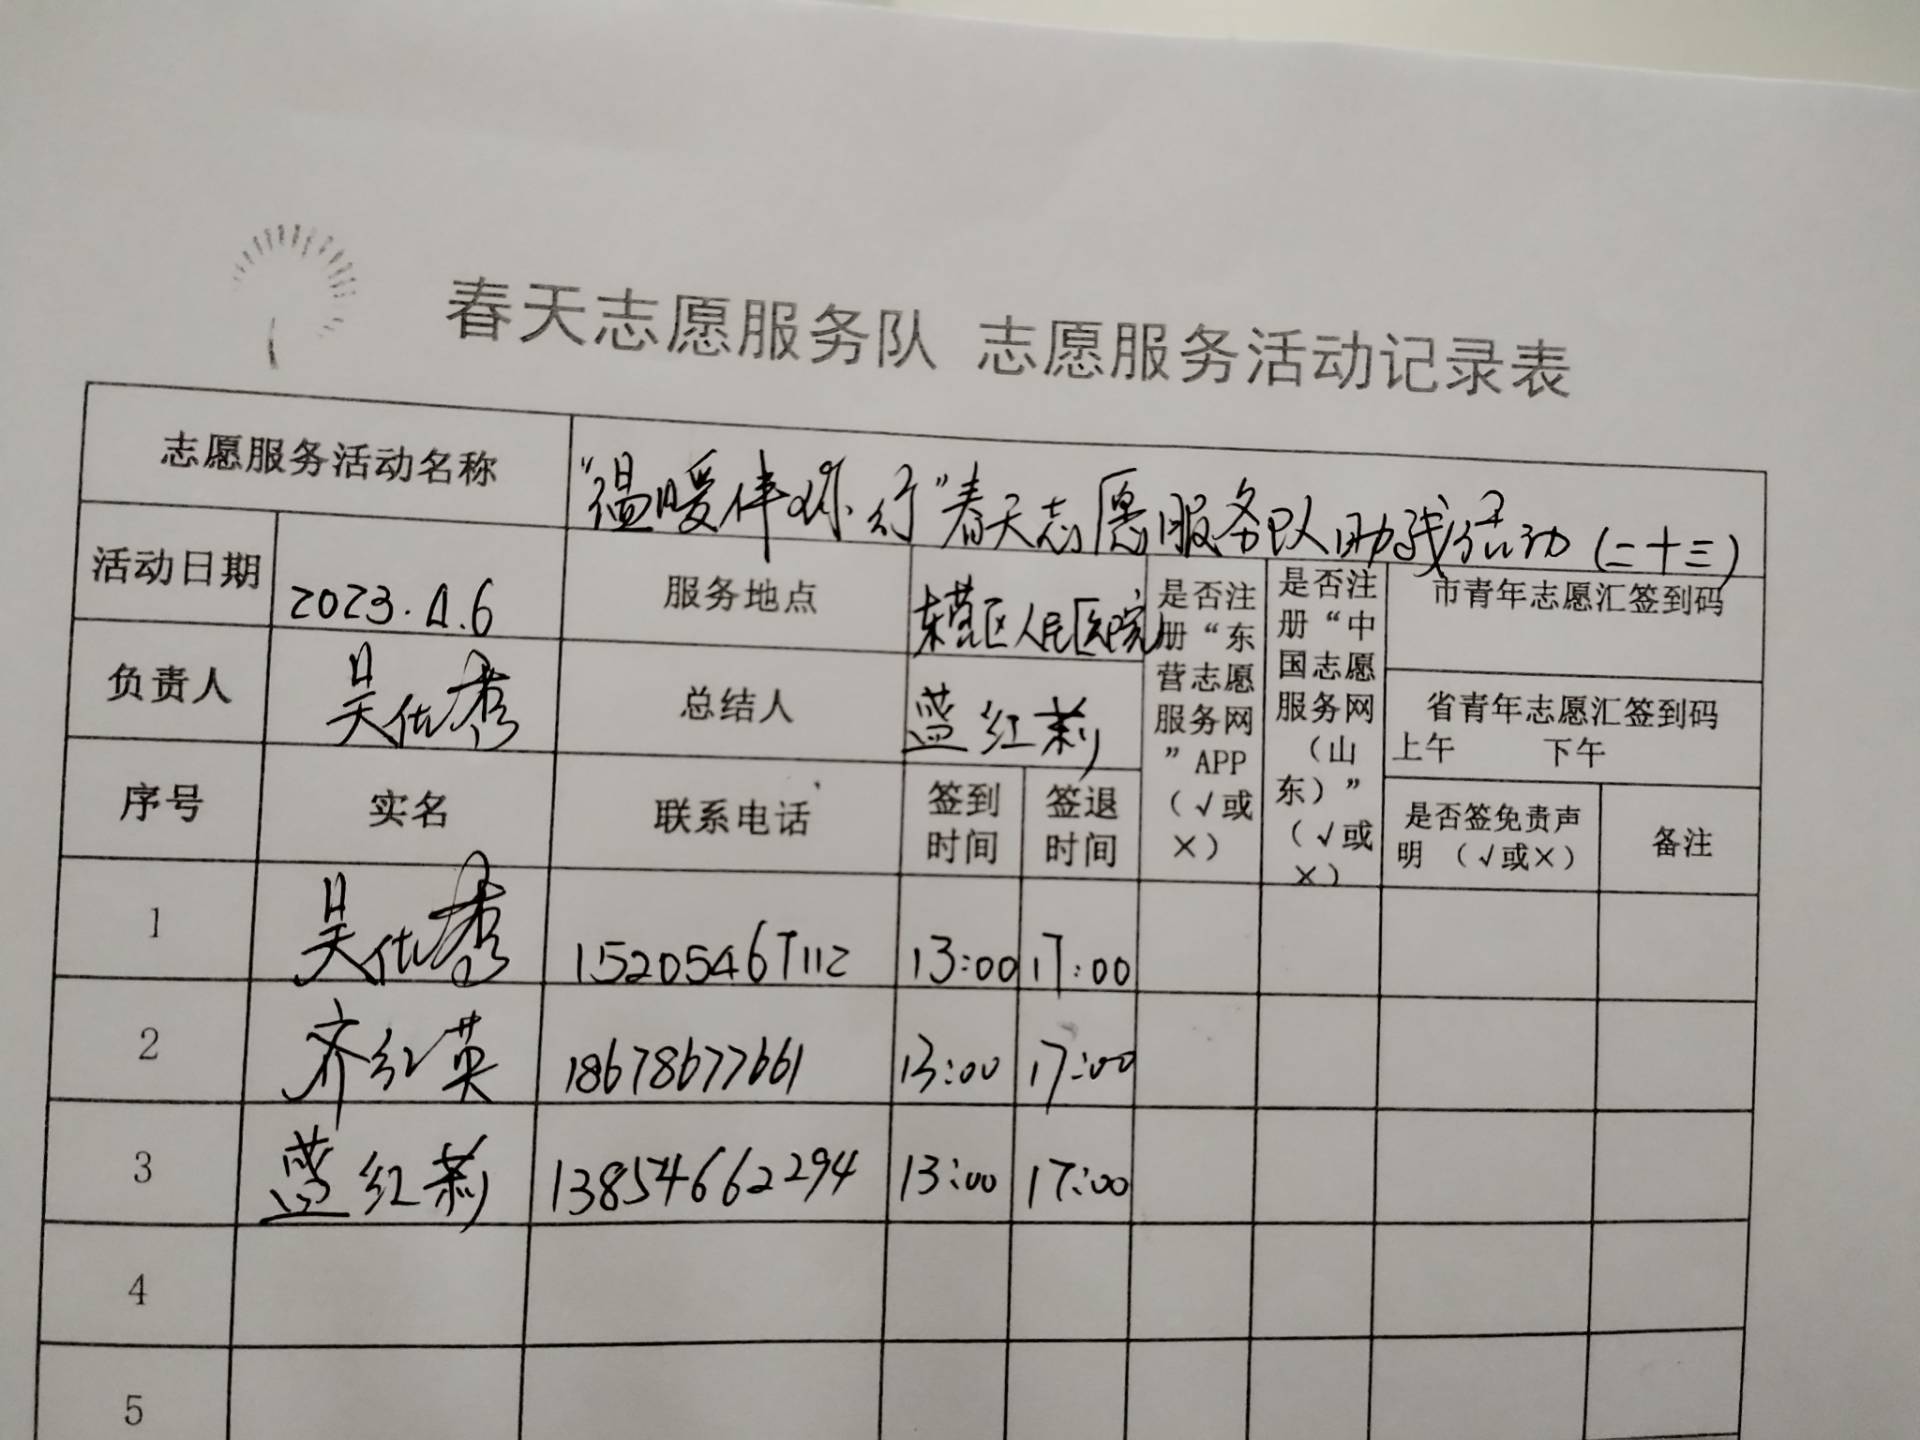 春天志愿服务队 志愿服务活动记录表
志愿服务活动名称
"温暖伴你行"春天志愿服务队助残活动(二十三)
活动日期
2023.4.6
服务地点
东营区人民医院
是否注册“东营志愿服务网”APP（√或×）
是否注册“中国志愿服务网（山东）”（√或×）
市青年志愿汇签到码
负责人
吴仕秀
总结人
蓝红莉
省青年志愿汇签到码
上午 下午
序号
实名
联系电话
签到时间
签退时间
是否签免责声明 （√或×）
备注
1 吴仕秀 15205467112 13:00 17:00
2 齐红英 18678677661 13:00 17:00
3 蓝红莉 13854662294 13:00 17:00
4
5